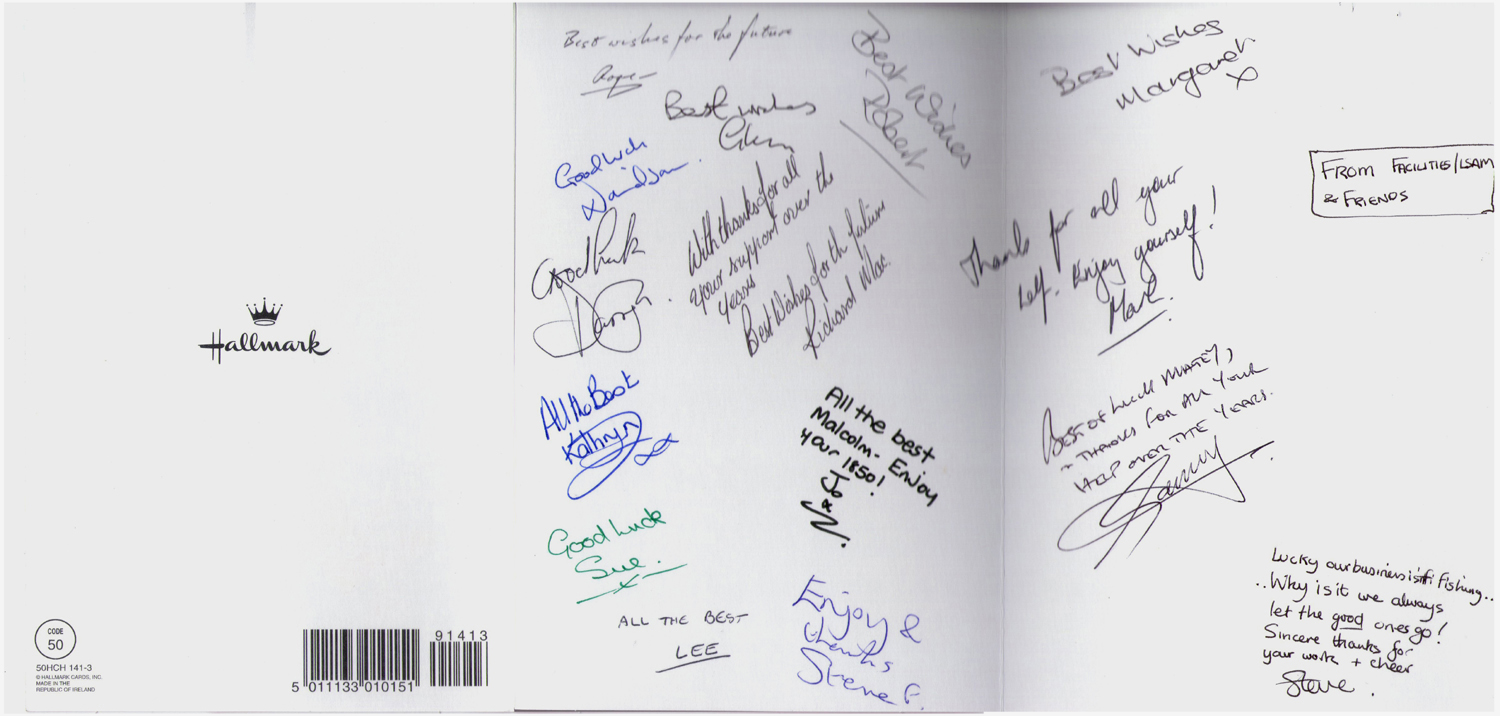 Hallmark
CODE
50
50HCH 141-3
© HALLMARK CARDS, INC.
MADE IN THE
REPUBLIC OF IRELAND
91413
5 011133 010151
Best wishes for the future
Best wishes
Glen
Best Wishes
Robert
Good luck
Good luck
With thanks for all
your support over the
years
Best Wishes for the future
Richard Mac.
All the Best
Kathryn
Good Luck
Sue.
x
ALL THE BEST
LEE
All the best
Malcolm - Enjoy
your 1850!
Jo
x
Enjoy &
thanks
Steve F.
Best Wishes
Margaret
x
FROM FACILITIES/LSAM
& FRIENDS
Thanks for all your
help. Enjoy yourself!
Mark.
BEST OF LUCK MATEY,
THANKS FOR ALL YOUR
HELP OVER THE YEARS.
Lucky our business isn't fishing..
..Why is it we always
let the good ones go!
Sincere thanks for
your work + cheer
Steve.